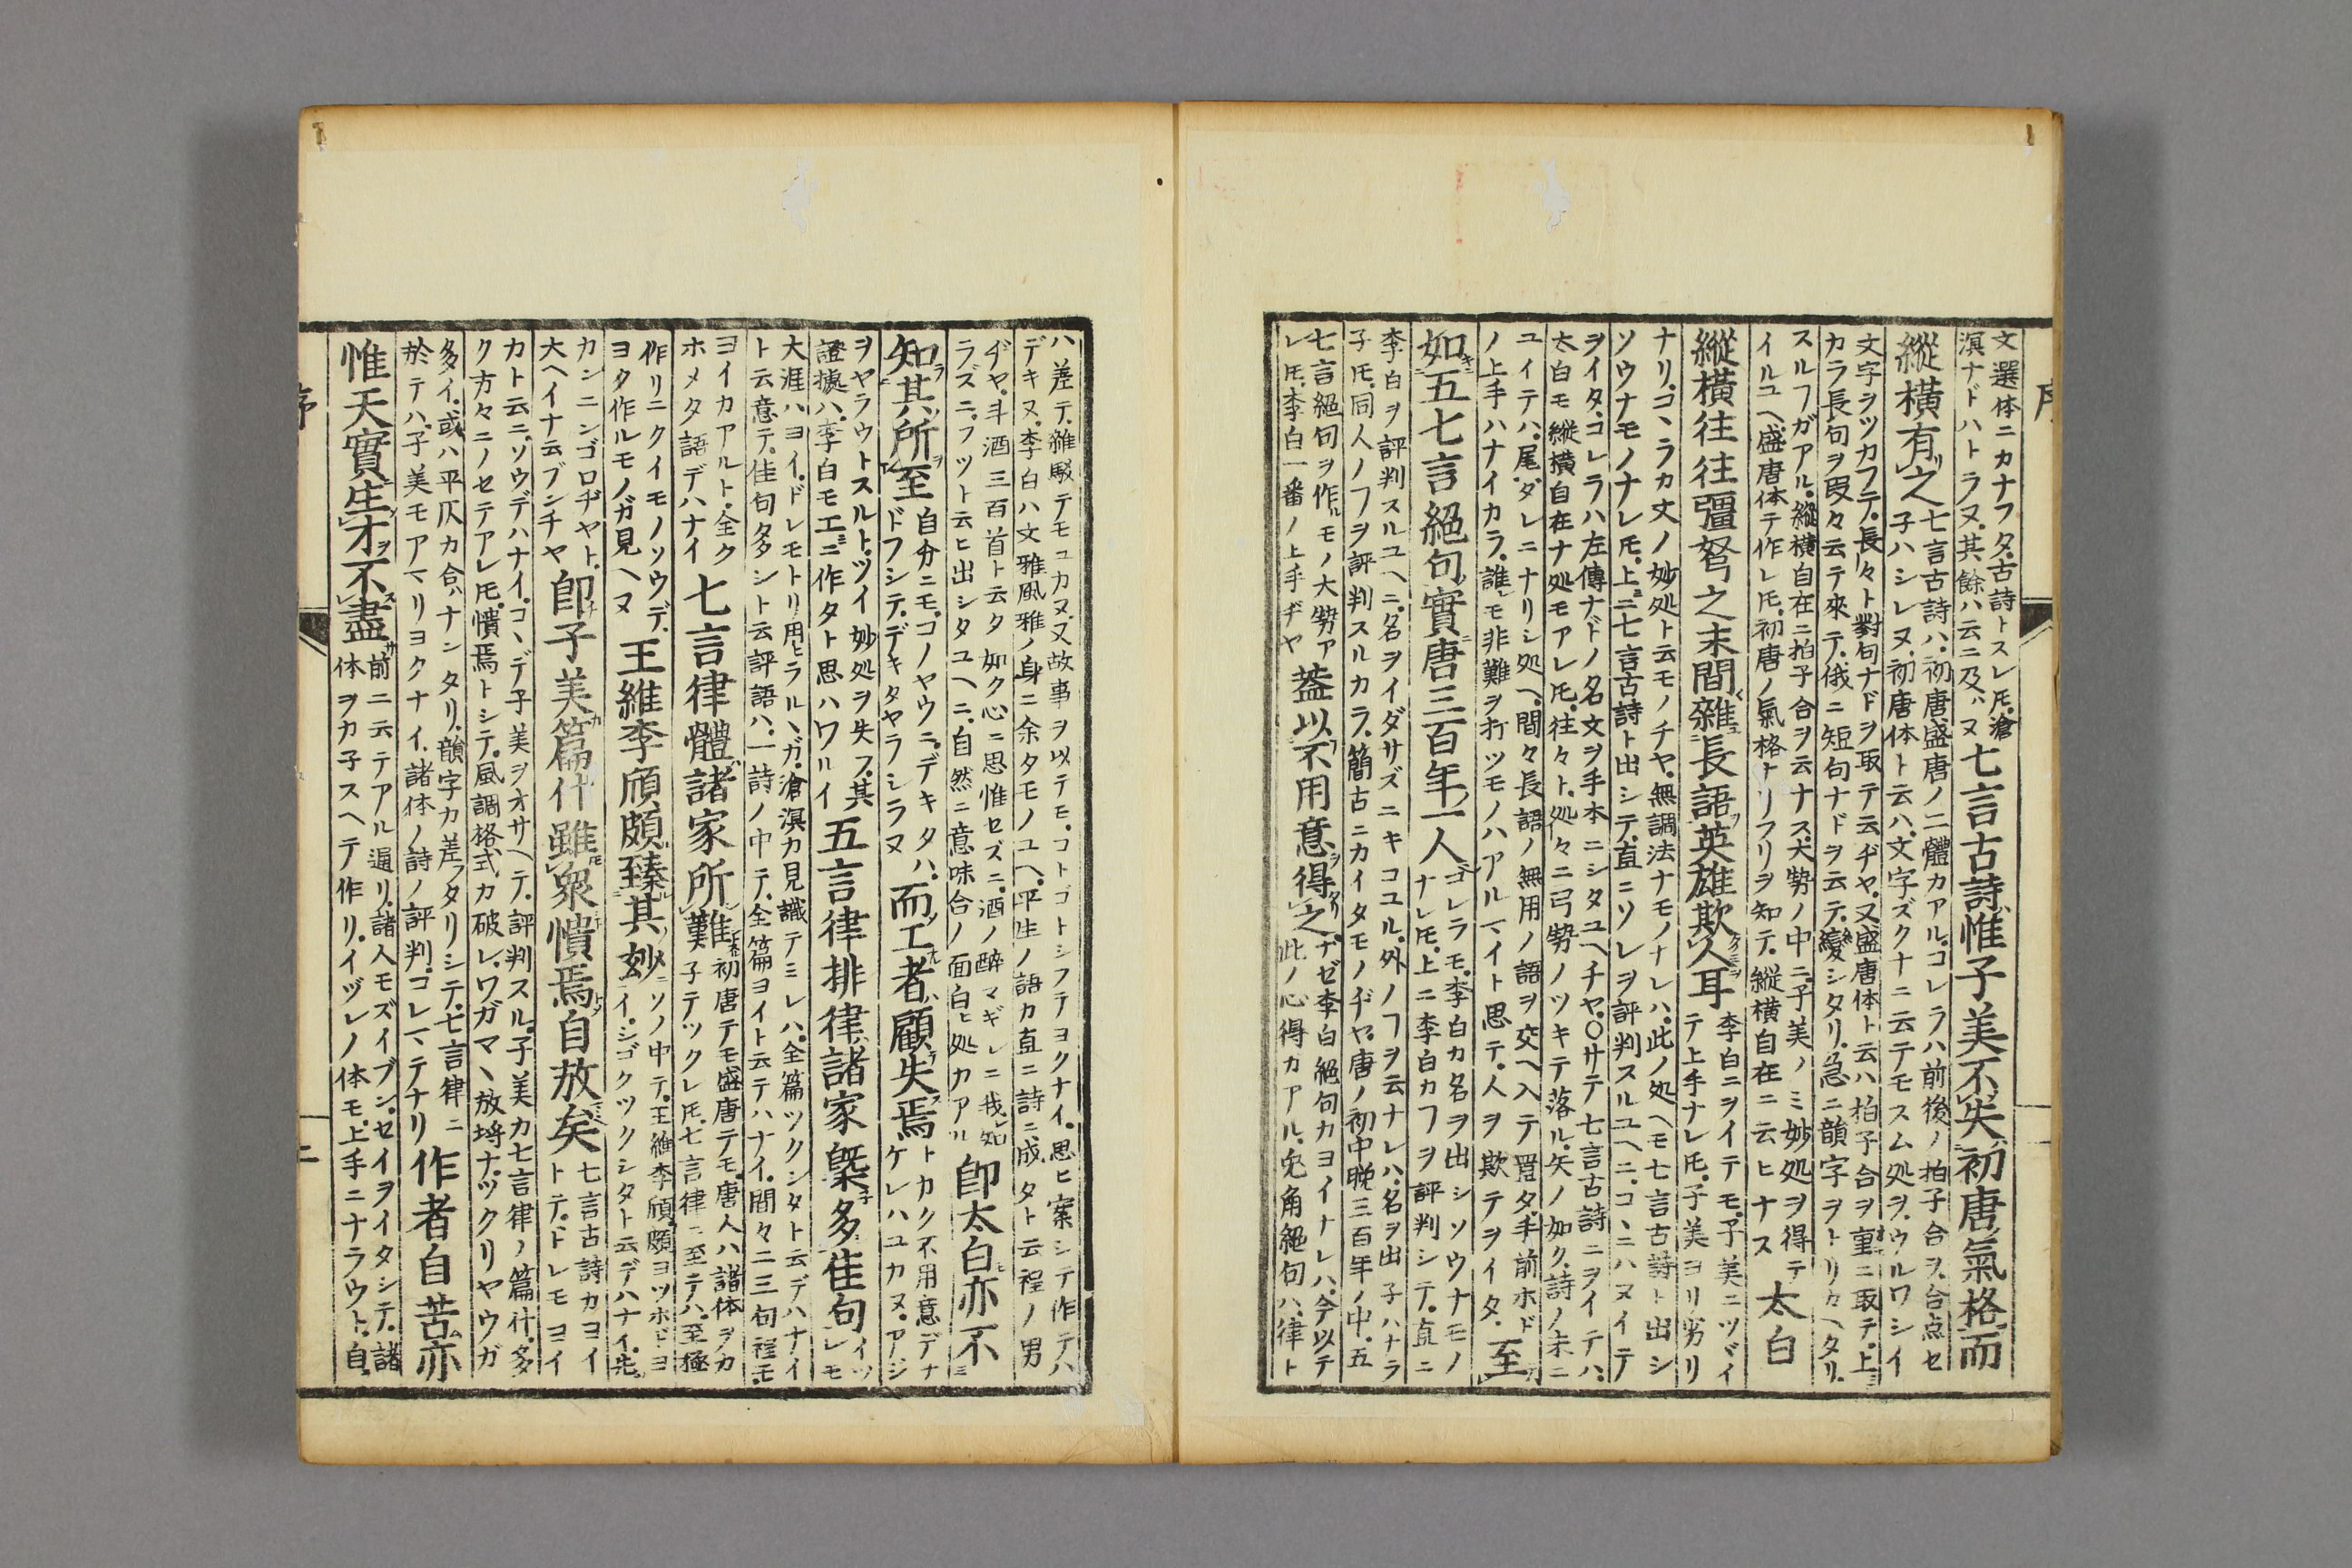 文選体ニカナフタ古詩トスレ𪜈滄
溟ナドハトラヌ其餘ハ云ニ及ハヌ
七言古詩惟子美不失初唐氣格而
縱横有之
七言古詩ハ初唐盛唐ノ二體カアルコレラハ前後ノ拍子合ヲ合点セ
子ハシレヌ初唐体ト云ハ文字ズクナニ云テモスム処ヲウルワシイ
文字ヲツカフテ長々ト對句ナドヲ取テ云ヂヤ又盛唐体ト云ハ拍子合ヲ重ニ取テ上
カラ長句ヲ段々云テ來テ俄ニ短句ナドヲ云テ変シタリ急ニ韻字ヲトリカヘタリ
スルフガアル縱横自在ニ拍子合ヲ云ナス大勢ノ中ニ子美ノミ妙処ヲ得テ
イルユヘ盛唐体テ作レ𪜈初唐ノ氣格ナリフリヲ知テ縱横自在ニ云ヒナス
太白
縱横往往彊弩之末間雜長語英雄欺人耳
李白ニヲイテモ子美ニツヾイ
テ上手ナレ𪜈子美ヨリ劣リ
ナリコヽラカ文ノ妙処ト云モノチヤ無調法ナモノナレハ此ノ処ヘモ七言古詩ト出シ
ソウナモノナレ𪜈上ニ七言古詩ト出シテ直ニソレヲ評判スルユヘニコヽニハヌイテ
ヲイタコレラハ左傳ナドノ名文ヲ手本ニシタユヘチヤ○サテ七言古詩ニヲイテハ
太白モ縱横自在ナ処モアレ𪜈往々ト処々ニ弓勢ノツキテ落ル矢ノ如ク詩ノ末ニ
ユイテハ尾ダレニナリシ処ヘ間々長語ノ無用ノ語ヲ交ヘ入テ置タ手前ホド
ノ上手ハナイカラ誰モ非難ヲ打ツモノハアルマイト思テ人ヲ欺テヲイタ
至
如五七言絕句實唐三百年一人
コレラモ李白カ名ヲ出シソウナモノ
ナレ𪜈上ニ李白カフヲ評判シテ直ニ
李白ヲ評判スルユヘニ名ヲイダサズニキコユル外ノフヲ云ナレハ名ヲ出子ハナラ
子𪜈同人ノフヲ評判スルカラ簡古ニカイタモノヂヤ唐ノ初中晩三百年ノ中五
七言絕句ヲ作ルモノ大勢ア
レ𪜈李白一番ノ上手ヂヤ
蓋以不用意得之
ナゼ李白絕句カヨイナレハ今以テ
此ノ心得カアル兔角絕句ハ律ト
ハ差テ雜駁テモユカヌ又故事ヲ以テモコトゴトシフテヨクナイ思ヒ案シテ作テハ
デキヌ李白ハ文雅風雅ノ身ニ余タモノユヘ平生ノ語カ直ニ詩ニ成タト云程ノ男
ヂヤ斗酒三百首ト云タ如ク心ニ思惟セズニ酒ノ醉マギレニ我知
ラズニフツト云ヒ出シタユヘニ自然ニ意味合ノ面白ヒ処カアル
即太白亦不
知其所至
自分ニモコノヤウニデキタハ
ドフシテデキタヤラシラヌ
而工者顧失焉
トカク不用意デナ
ケレハユカヌアジ
ヲヤラウトスルトツイ妙処ヲ失フ其
證據ハ李白モ工ニ作タト思ハワルイ
五言律排律諸家槩多佳句
イツ
レモ
大涯ハヨイドレモトリ用ヒラルヽガ滄溟カ見識テミレハ全篇ツクシタト云デハナイ
ト云意テ佳句多シト云評語ハ一詩ノ中テ全篇ヨイト云テハナイ間々ニ三句程モ
ヨイカアルト全ク
ホメタ語デハナイ
七言律體諸家所難
初唐テモ盛唐テモ唐人ハ諸体ヲカ
子テツクレ𪜈七言律ニ至テハ至極
作リニクイモノソウデ
ヨタ作ルモノガ見ヘヌ
王維李頎頗臻其妙
ソノ中テ王維李頎頗ヨツホドヨ
イシゴクツクシタト云デハナイ先
カンニンゴロヂヤト
大ヘイナ云ブンチヤ
即子美篇什雖衆憒焉自放矣
七言古詩カヨイ
トテドレモヨイ
カト云ニソウデハナイコヽデ子美ヲオサヘテ評判スル子美カ七言律ノ篇什多
ク方々ニノセテアレ𪜈憒焉トシテ風調格式カ破レワガマヽ放埒ナツクリヤウガ
多イ或ハ平仄カ合ハナンタリ韻字カ差フタリシテ七言律ニ
於テハ子美モアマリヨクナイ諸体ノ詩ノ評判コレマテナリ
作者自苦亦
惟天實生才不盡
前ニ云テアル通リ諸人モズイブンセイヲイタシテ諸
体ヲカ子スヘテ作リイヅレノ体モ上手ニナラウト自
序
二